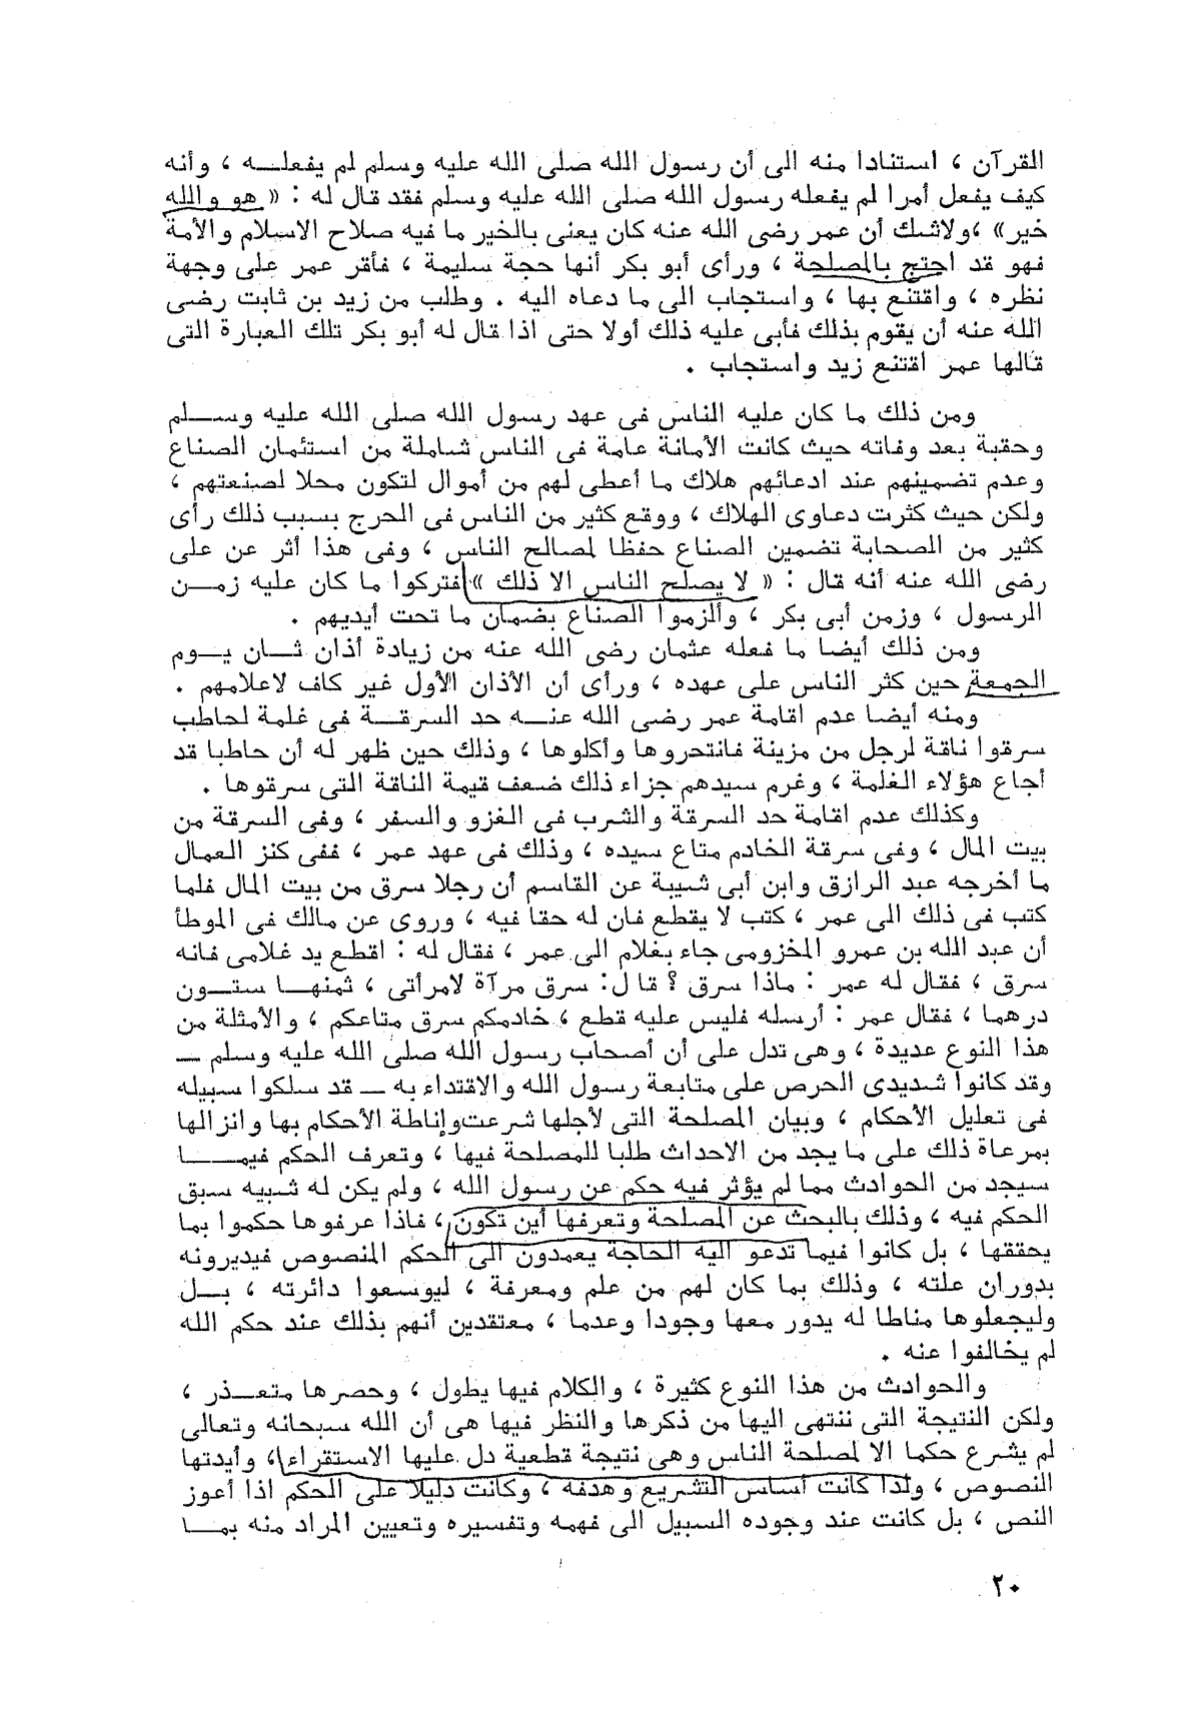 القرآن ، استنادا منه الى أن رسول الله صلى الله عليه وسلم لم يفعله ، وأنه
كيف يفعل أمرا لم يفعله رسول الله صلى الله عليه وسلم فقد قال له : « هو والله
خير» ،ولاشك أن عمر رضى الله عنه كان يعنى بالخير ما فيه صلاح الاسلام والأمة
فهو قد احتج بالمصلحة ، ورأى أبو بكر أنها حجة سليمة ، فأقر عمر على وجهة
نظره ، واقتنع بها ، واستجاب الى ما دعاه اليه . وطلب من زيد بن ثابت رضى
الله عنه أن يقوم بذلك فأبى عليه ذلك أولا حتى اذا قال له أبو بكر تلك العبارة التى
قالها عمر اقتنع زيد واستجاب .
ومن ذلك ما كان عليه الناس فى عهد رسول الله صلى الله عليه وسلم
وحقبة بعد وفاته حيث كانت الأمانة عامة فى الناس شاملة من استئمان الصناع
وعدم تضمينهم عند ادعائهم هلاك ما أعطى لهم من أموال لتكون محلا لصنعتهم ،
ولكن حيث كثرت دعاوى الهلاك ، ووقع كثير من الناس فى الحرج بسبب ذلك رأى
كثير من الصحابة تضمين الصناع حفظا لمصالح الناس ، وفى هذا أثر عن على
رضى الله عنه أنه قال : « لا يصلح الناس الا ذلك » فتركوا ما كان عليه زمن
الرسول ، وزمن أبى بكر ، وألزموا الصناع بضمان ما تحت أيديهم .
ومن ذلك أيضا ما فعله عثمان رضى الله عنه من زيادة أذان ثان يوم
الجمعة حين كثر الناس على عهده ، ورأى أن الأذان الأول غير كاف لاعلامهم .
ومنه أيضا عدم اقامة عمر رضى الله عنه حد السرقة فى غلمة لحاطب
سرقوا ناقة لرجل من مزينة فانتحروها وأكلوها ، وذلك حين ظهر له أن حاطبا قد
أجاع هؤلاء الغلمة ، وغرم سيدهم جزاء ذلك ضعف قيمة الناقة التى سرقوها .
وكذلك عدم اقامة حد السرقة والشرب فى الغزو والسفر ، وفى السرقة من
بيت المال ، وفى سرقة الخادم متاع سيده ، وذلك فى عهد عمر ، ففى كنز العمال
ما أخرجه عبد الرازق وابن أبى شيبة عن القاسم أن رجلا سرق من بيت المال فلما
كتب فى ذلك الى عمر ، كتب لا يقطع فان له حقا فيه ، وروى عن مالك فى الموطأ
أن عبد الله بن عمرو المخزومى جاء بغلام الى عمر ، فقال له : اقطع يد غلامى فانه
سرق ، فقال له عمر : ماذا سرق ؟ قال: سرق مرآة لامرأتى ، ثمنها ستون
درهما ، فقال عمر : أرسله فليس عليه قطع ، خادمكم سرق متاعكم ، والأمثلة من
هذا النوع عديدة ، وهى تدل على أن أصحاب رسول الله صلى الله عليه وسلم —
وقد كانوا شديدى الحرص على متابعة رسول الله والاقتداء به — قد سلكوا سبيله
فى تعليل الأحكام ، وبيان المصلحة التى لأجلها شرعت وإناطة الأحكام بها وانزالها
بمرعاة ذلك على ما يجد من الاحداث طلبا للمصلحة فيها ، وتعرف الحكم فيما
سيجد من الحوادث مما لم يؤثر فيه حكم عن رسول الله ، ولم يكن له شبيه سبق
الحكم فيه ، وذلك بالبحث عن المصلحة وتعرفها أين تكون ، فاذا عرفوها حكموا بما
يحققها ، بل كانوا فيما تدعو اليه الحاجة يعمدون الى الحكم المنصوص فيديرونه
بدوران علته ، وذلك بما كان لهم من علم ومعرفة ، ليوسعوا دائرته ، بل
وليجعلوها مناطا له يدور معها وجودا وعدما ، معتقدين أنهم بذلك عند حكم الله
لم يخالفوا عنه .
والحوادث من هذا النوع كثيرة ، والكلام فيها يطول ، وحصرها متعذر ،
ولكن النتيجة التى ننتهى اليها من ذكرها والنظر فيها هى أن الله سبحانه وتعالى
لم يشرع حكما الا لمصلحة الناس وهى نتيجة قطعية دل عليها الاستقراء ، وأيدتها
النصوص ، ولذا كانت أساس التشريع وهدفه ، وكانت دليلا على الحكم اذا أعوز
النص ، بل كانت عند وجوده السبيل الى فهمه وتفسيره وتعيين المراد منه بما
٢٠